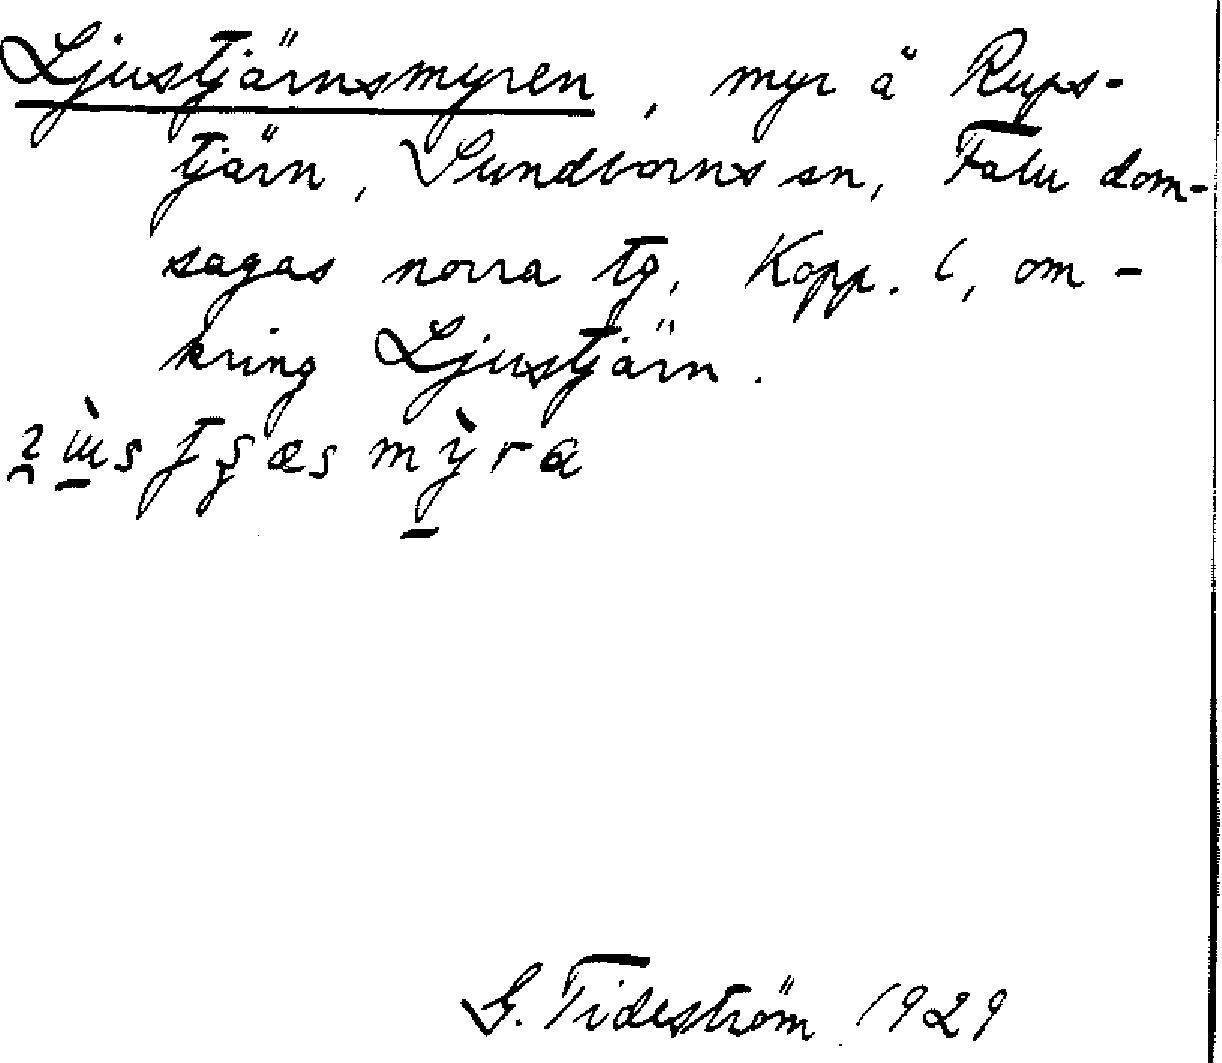 Ljustjärnsmyren, myr å Rups-
tjärn, Sundborns sn, Falu dom-
sagas norra tg, Kopp. l, om-
kring Ljustjärn.
G. Tideström 1929